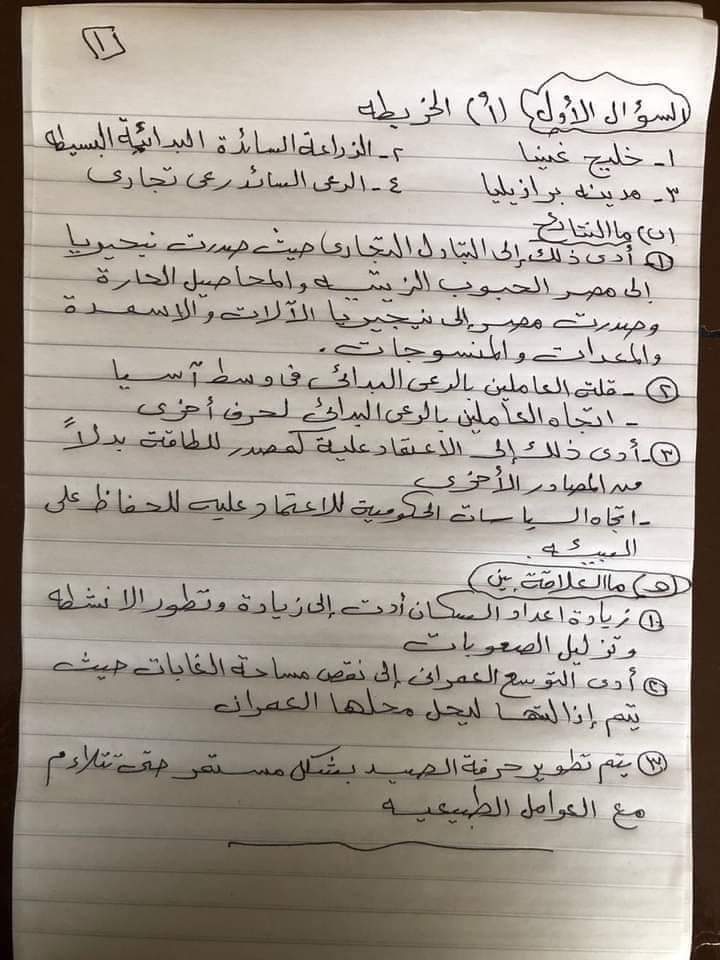 ١
السؤال الأول (أ) الخريطه
١- خليج غينيا ٢- الزراعة السائدة البدائية البسيطه
٣- مدينه برازيليا ٤- الرعى السائد رعى تجارى
(ب) ما النتائج
١ أدى ذلك إلى التبادل التجارى حيث صدرت نيجيريا
إلى مصر الحبوب الزيتيه والمحاصيل الحارة
وصدرت مصر إلى نيجيريا الآلات والاسمدة
والمعدات والمنسوجات.
٢ - قلته العاملين بالرعى البدائى فى وسط آسيا
- اتجاه العاملين بالرعى البدائى لحرف أخرى
٣ - أدى ذلك إلى الاعتقاد علية كمصدر للطاقة بدلاً
من المصادر الأخرى
- اتجاه السياسات الحكومية للاعتماد عليه للحفاظ على
البيئه.
(هـ) ما العلاقة بين
١ زيادة اعداد السكان أدت إلى زيادة وتطور الانشطه
وتزليل الصعوبات
٢ أدى التوسع العمرانى إلى نقص مساحة الغابات حيث
يتم إذالتها ليحل محلها العمران
٣ يتم تطوير حرفة الصيد بشكل مستمر حتى تتلاءم
مع العوامل الطبيعيه